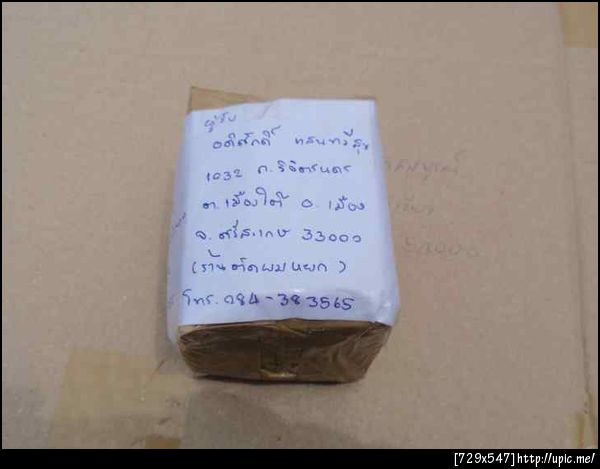 ผู้รับ
อดิศักดิ์
1032 ถ.วิจิตรนคร
ต.เมืองใต้ อ.เมือง
จ.ศรีสะเกษ 33000
(ร้านตัดผมหยก)
โทร.084-383565
[729x547]http://upic.me/